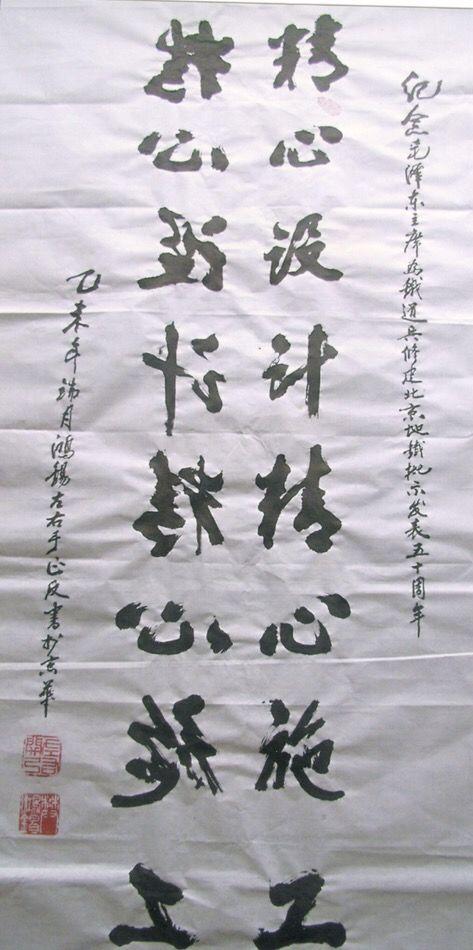 纪念毛泽东主席为鐵道兵修建北京地鐵批示发表五十周年
精心设计精心施工
精心设计精心施工
乙未年瑞月鸿锡左右手正反書於京華